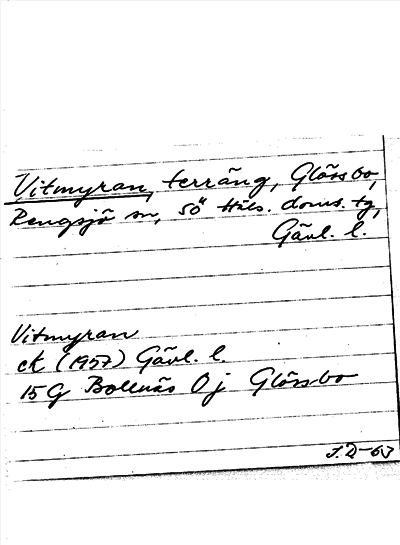 Vitmyran, terräng, Glössbo,
Rengsjö sn, Sö Häls. doms. tg,
Gävl. l.
Vitmyran
ek (1957) Gävl. l.
15 G Bollnäs 0 j Glössbo
J.D-63